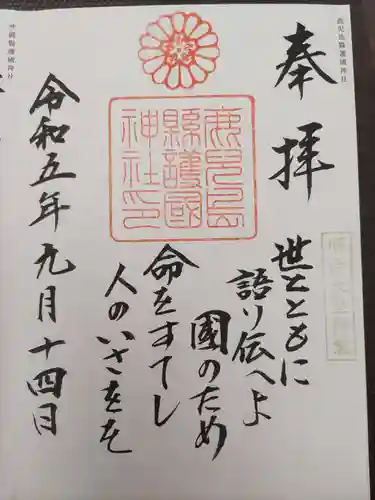 鹿児島縣護國神社
奉拝
世とともに
語り伝へよ
國のため
命をすてし
人のいさをを
鹿児島
縣護國
神社印
令和五年九月十四日
沖縄縣護國神社